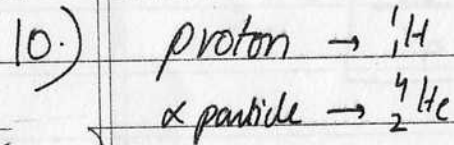 10.) proton → ¹₁H
α particle → ⁴₂He